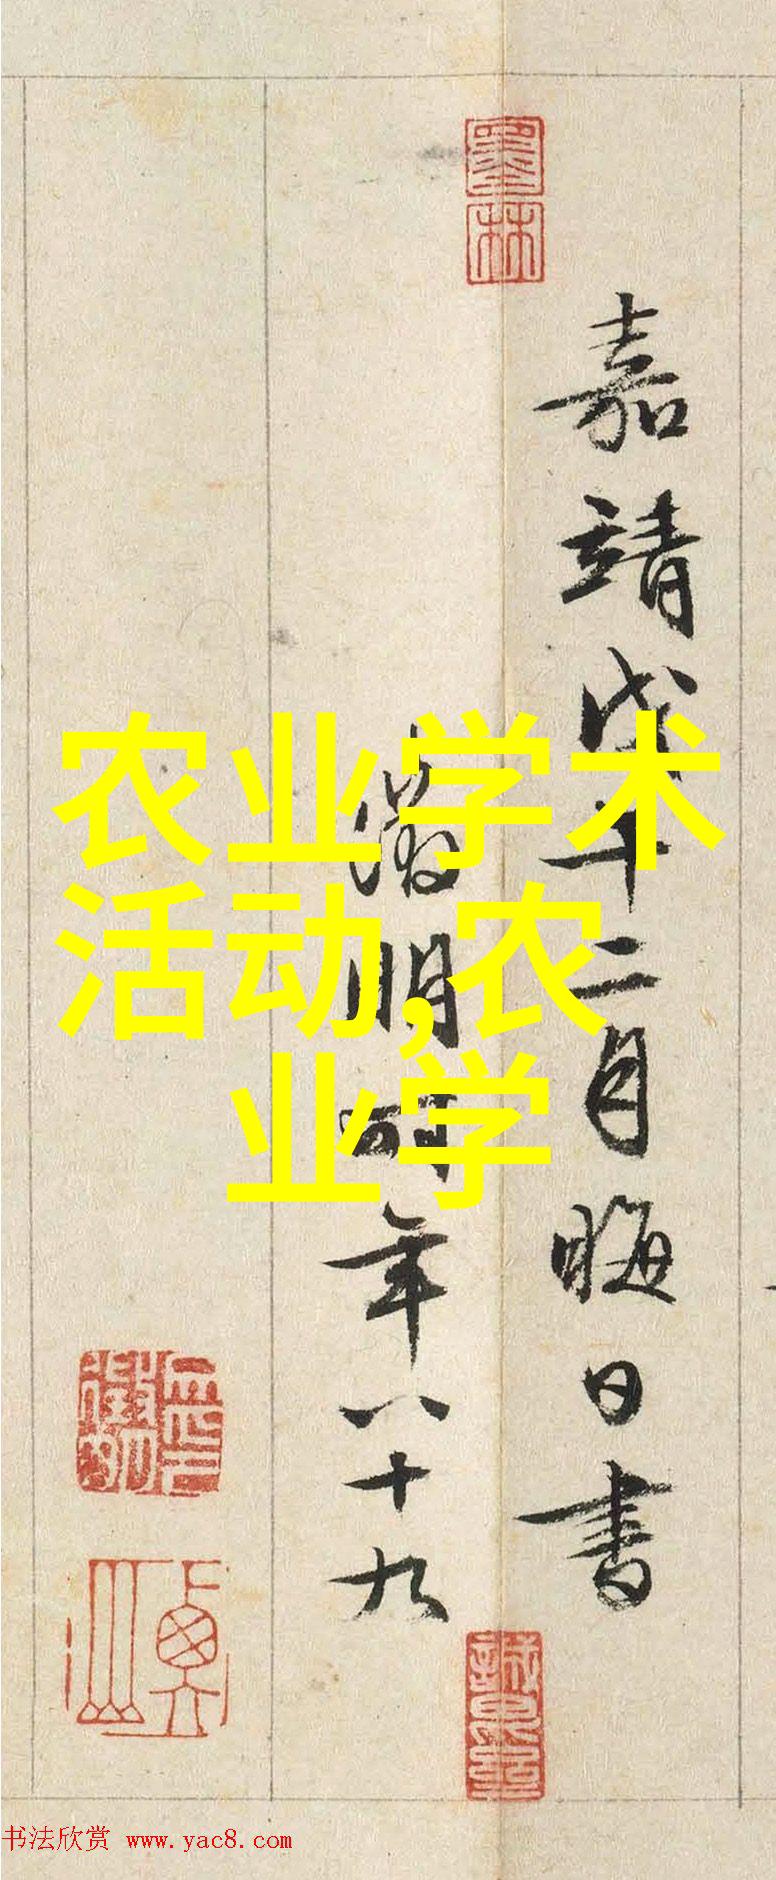 农业学术
活动,农
业学
嘉靖戊午二月晦日書
徵明時年八十九
墨林
衡山
书法欣赏 www.yac8.com